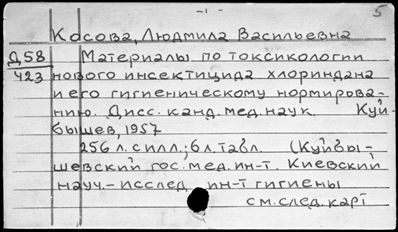 -1- 5
Косова, Людмила Васильевна
Д58 Материалы по токсикологии
423 нового инсектицида хлориндана
и его гигиеническому нормирова-
нию. Дисс. канд. мед. наук. Куй-
бышев, 1957
256 л. с илл.; 6 л. табл. (Куйбы-
шевский гос. мед. ин-т. Киевский
науч.-исслед. ин-т гигиены
см. след. карт